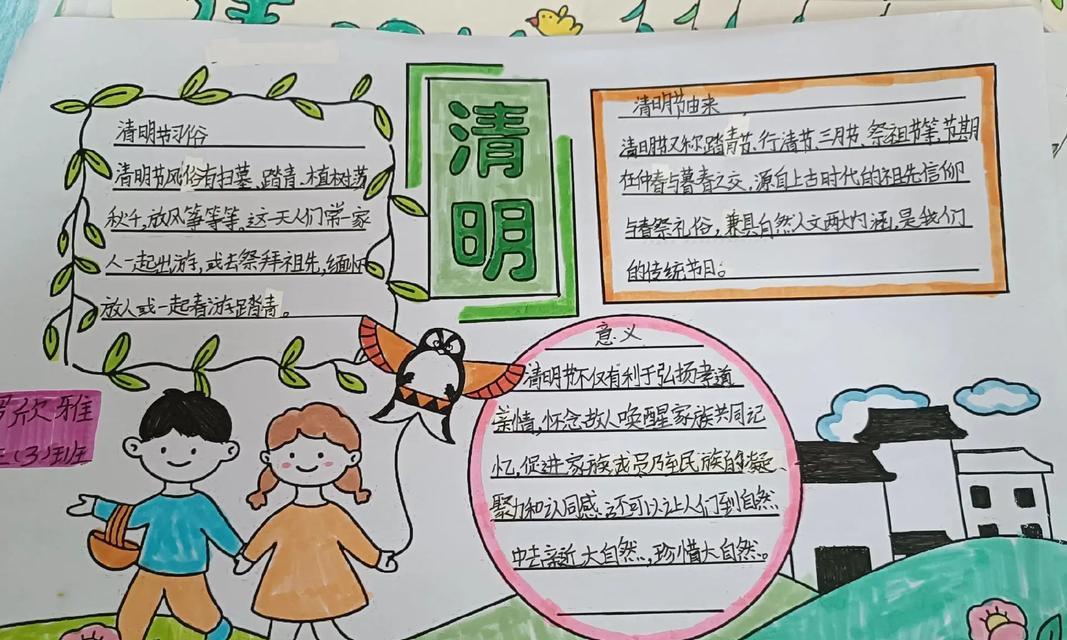 清明节习俗
清明节风俗有扫墓、踏青、植树荡
秋千,放风筝等等。这一天人们常一家
人一起出游,或去祭拜祖先,缅怀
故人或一起春游踏青。
清
明
清明节由来
清明节又称踏青节、行清节、三月节、祭祖节等,节期
在仲春与暮春之交,源自上古时代的祖先信仰
与春祭礼俗,兼具自然人文两大内涵,是我们
的传统节日。
意义
清明节不仅有利于弘扬孝道
亲情,怀念故人唤醒家族共同记
忆,促进家族成员乃至民族的凝
聚力和认同感还可以让人们到自然
中去亲近大自然,珍惜大自然。
欣雅
(3)班